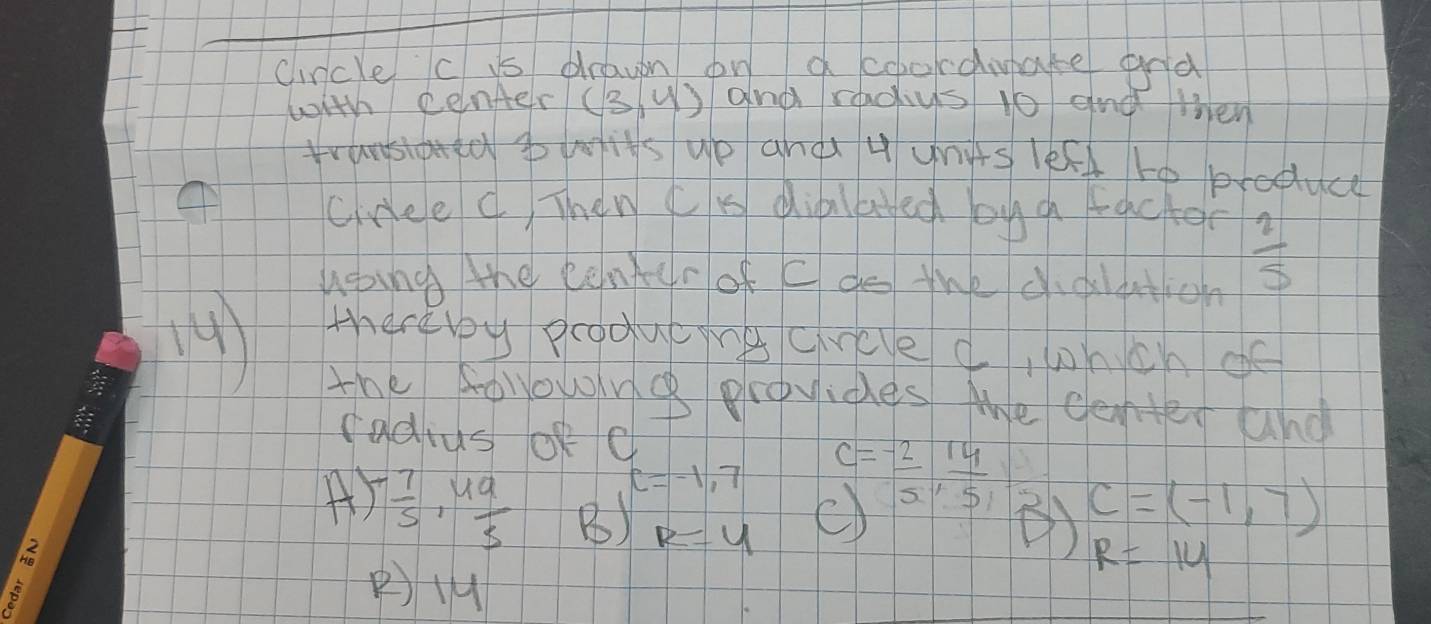 Circle C is drawn on a coordinate grid
with center (3,4) and radius 10 and then
translated 3 units up and 4 units left to produce
Circlee C, Then C is dialated by a factor 2/5
using the center of C as the dialation
14) thereby producing circle C, which of
the following provides the center and
radius of C
A) -7/5, 49/5 B) C=-1,7 R=4 C) C=-2/5, 14/5, D) C=(-1,7) R=14
R) 14
Cedar HB 2